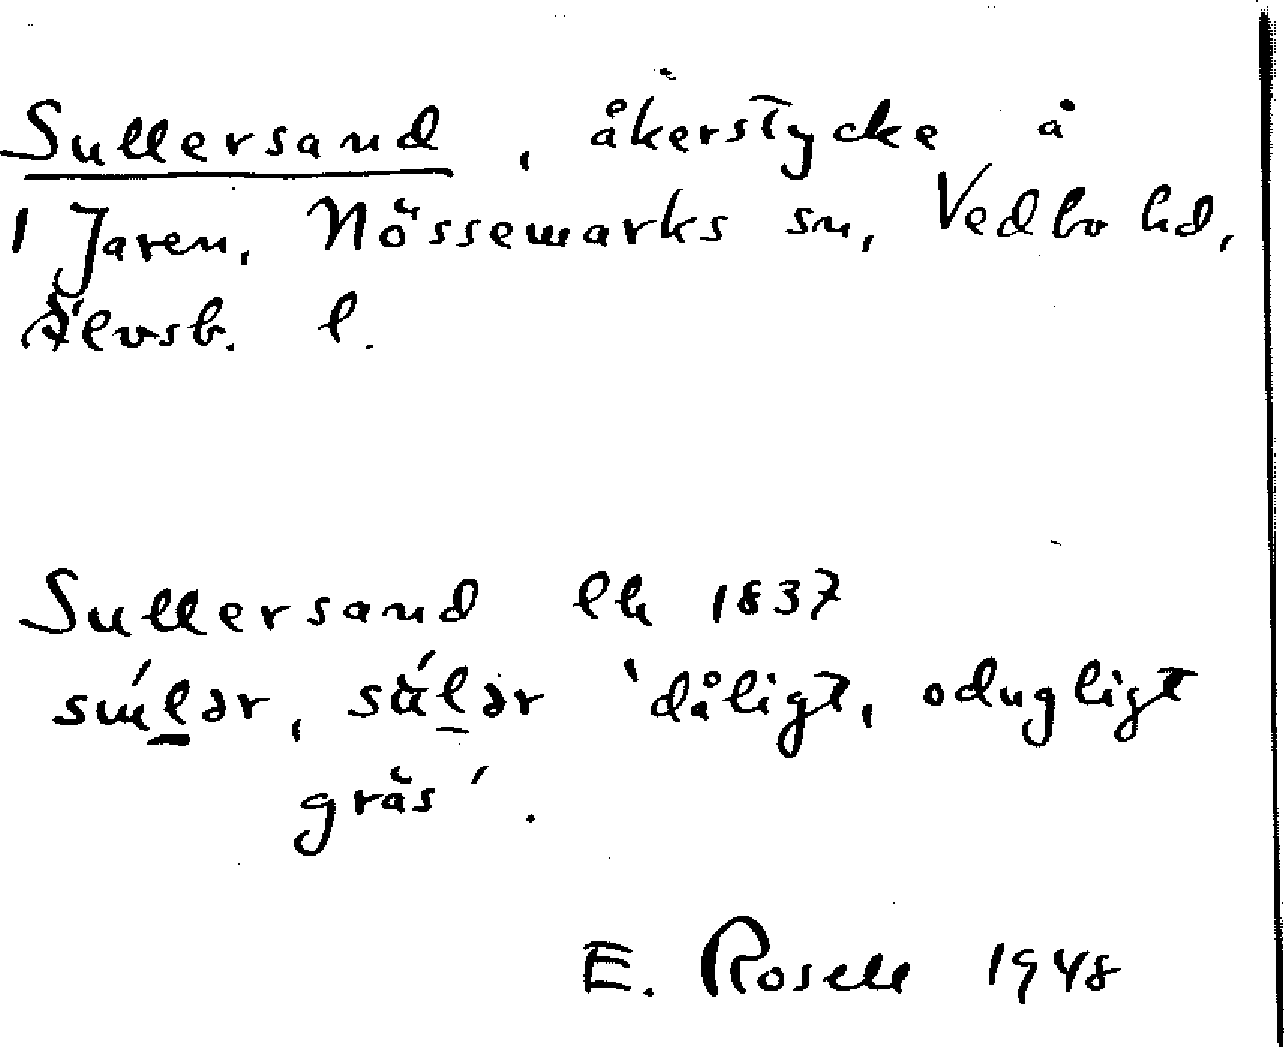 Sullersand, åkerstycke å
1 Jaren, Nössemarks sn, Vedbo hd,
Älvsb. l.
Sullersand lh 1837
súlər, sálər 'dåligt, odugligt
gräs'.
E. Rosell 1948